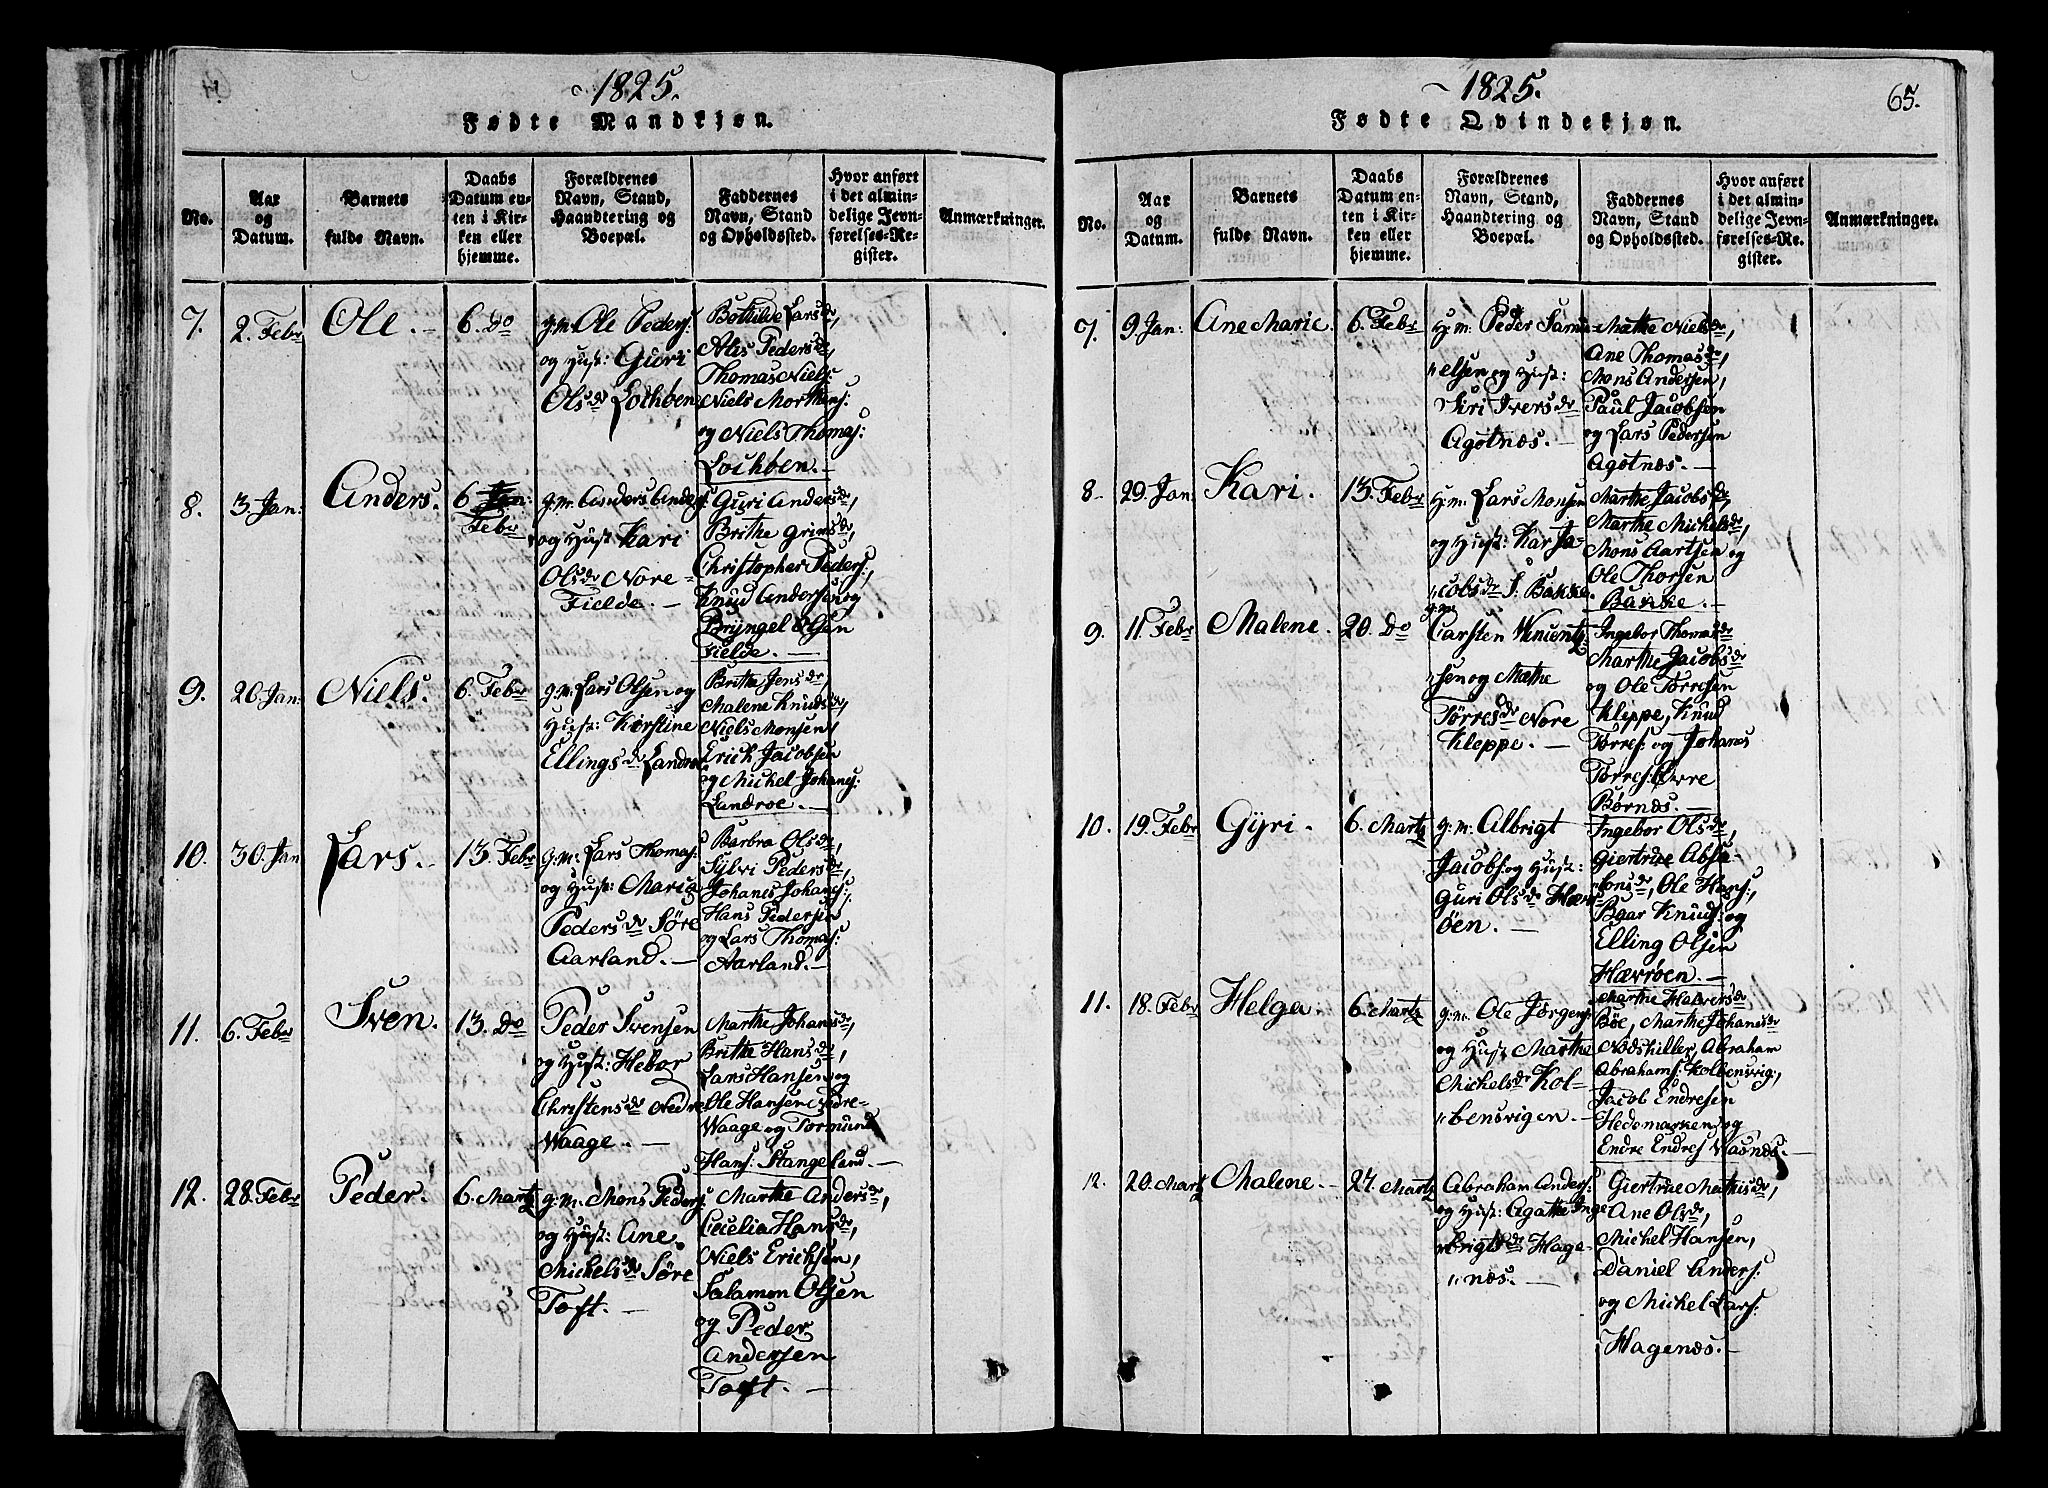 1825.
Fødte Mandkjøn.
No.
Aar
og
Datum.
Barnets
fulde Navn.
Daabs
Datum en-
ten i Kir-
ken eller
hjemme.
Forældrenes
Navn, Stand,
Haandtering og
Boepæl.
Faddernes
Navn, Stand
og Opholdssted.
Hvor anført
i det almin-
delige Jevn-
førelses-Re-
gister.
Anmærkninger.
7.
2. Febr
Ole.
6. Do
g.m. Ole Peders:
og Hust: Giøri
Olsdr Lochøen
Bothilde Larsdr,
Alis Pedersdr,
Thomas Niels:
Niels Mortens:
og Niels Thomas:
Lochøen.
8.
3. Jan:
Anders.
6. Jan:
Febr
g.m. Anders Anders:
og Hust Kari
Olsdr Nore-
Fielde.
Guri Andersdr
Brithe Grimsdr,
Christopher Peders:,
Knud Andersen og
Bryngel Olsen
Fielde.
9.
20. Jan:
Niels.
6. Febr
g.m: Lars Olsen og
Hust: Kørstine
Ellingsdr Landroe
Brithe Jensdr,
Malene Knudsdr,
Niels Monsen,
Erich Jacobsen
og Michel Johanes:
Landroe.
10.
30. Jan
Lars.
13. Febr
g.m: Lars Thomas:
og Hust: Maria
Pedersdr Søre
Aarland.
Barbra Olsdr,
Sylvi Pedersdr,
Johanes Johanes:,
Hans Pedersen
og Lars Thomas:
Aarland.
11.
6. Febr
Sven.
13. Do
Peder Svensen
og Hust: Hebor
Christensdr Nedre
Waage.
Marthe Johansdr,
Brithe Hansdr,
Lars Hansen og
Ole Hansen Nedre-
Waage og Tormund
Hans: Stangeland.
12.
28. Febr
Peder.
6. Martz
g.m. Mons Peders:
og Hust: Ane
Michelsdr Søre
Toft.
Marthe Andersdr,
Cecelia Hansdr,
Niels Erichsen,
Salamon Olsen
og Peder
Andersen
Toft.
1825.
65.
Fødte Qvindekjøn.
No.
Aar
og
Datum.
Barnets
fulde Navn.
Daabs
Datum en-
ten i Kir-
ken eller
hjemme.
Forældrenes
Navn, Stand,
Haandtering og
Boepæl.
Faddernes
Navn, Stand
og Opholdssted.
Hvor anført
i det almin-
delige Jevn-
førelses-Re-
gister.
Anmærkninger.
7.
9. Jan:
Ane Marie.
6. Febr
H.m. Peder Samu-
"elsen og Hust:
Siri Iversdr
Agotnæs.
Mathe Nielsdr,
Ane Thomasdr,
Mons Andersen,
Paul Jacobsen
og Lars Pedersen
Agotnæs.
8.
29. Jan:
Kari.
13. Febr
H.m. Lars Monsen
og Hust: Kar Ja-
"cobsdr S: Bakke.
Marthe Jacobsdr,
Marthe Michelsdr,
Mons Aartsen og
Ole Thorsen
Bakke.
9.
11. Febr
Malene.
20. Do
g.m
Carsten Winentz-
"sen og Mathe
Tørresdr Nore
Kleppe.
Ingebor Thomasdr
Marthe Jacobsdr
og Ole Tørresen
Kleppe, Knud
Tørres: og Johanes
Tørres: Øvre
Børnæs.
10.
19. Febr
Gyri.
6. Martz
g.m: Albrigt
Jacobs: og Hust:
Guri Olsdr Hævr-
øen.
Ingebor Olsdr,
Giertrue Absa-
lonsdr, Ole Hans:,
Baar Knuds: og
Elling Olsen
Hævrøen.
11.
18. Febr
Helga.
6. Martz
g.m. Ole Jørgens:
og Hust Marthe
Michelsdr Kol-
"bensvigen.
Marthe Halversdr
Bøe, Marthe Johanesdr
Nodskiller, Abraham
Abrahams: Kolbensvig:,
Jacob Endresen
Hedemarken og
Endre Endres: Wasnæs.
12.
20. Martz
Malene.
27. Martz
Abraham Anders:
og Hust: Agathe Inge
"brigtsdr Hage-
"næs.
Giertrue Mathisdr,
Ane Olsdr,
Michel Hansen,
Daniel Anders:
og Michel Lars:
Hagenæs.